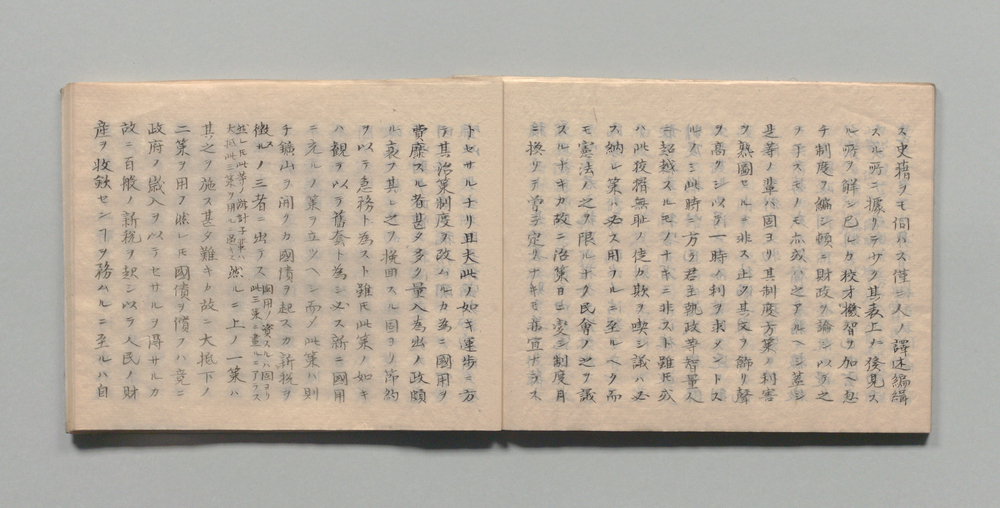 ス史籍ヲモ伺ハス僅ニ人ノ譯述編緝
スル所ニ據リテ少ク其表上ノ後見ス
ル所ヲ解シ己レカ校才機智ヲ加ヘ忽
チ制度ヲ編シ頓ニ財政ヲ論シ以テ之
ヲ于スモノモ亦或ハ之アルヘシ蓋シ
是等ノ輩ハ固ヨリ其制度方策ノ利害
ヲ熟圖セルニ非ス止タ其文ヲ飾リ聲
ヲ高クシ以テ一時ノ利ヲ求メントス
ルノミ此時ニ方テ君主執政等智量人
ニ超越スルモノナキニ非スト雖モ或
ハ此狡猾無恥ノ徒カ欺ヲ喫シ議ハ必
ス納レ策ハ必ス用フルニ至ルヘク而
モ憲法ノ之ヲ限ルナク民會ノ之ヲ議
スルナキカ故ニ治策日ニ變シ制度月
ニ換リテ曽テ定リナキモ亦宜ナラス
トセサルナリ且夫此ノ如キ運歩ニ方
テ其治策制度ヲ改ムルカ為ニ國用ヲ
費靡スル者甚タ多ク量入為出ノ政頗
ル衰フ其レ之ヲ挽回スル固ヨリ節約
ヲ以テ急務ト為スト雖モ此策ノ如キ
ハ觀ヲ以テ舊套ト為シ必ス新ニ國用
ニ充ルノ策ヲ立ツヘシ而メ此策ハ則
チ鑛山ヲ開クカ國債ヲ起スカ新税ヲ
徴スルノ三者ニ出テス國用ノ資スルハ固ヨリ
此三策ニ盡ルニアラス
然レモ此等ノ計子輩ハ
大抵此三策ヲ用ルニ過キス然ルニ上ノ一策ハ
其之ヲ施ス甚タ難キカ故ニ大抵下ノ
二策ヲ用フ然レモ國債ヲ償フハ竟ニ
政府ノ歳入ヲ以テセサルヲ得サルカ
故ニ百般ノ新税ヲ起シ以テ人民ノ財
産ヲ收歛センヿヲ務ムルニ至ルハ自